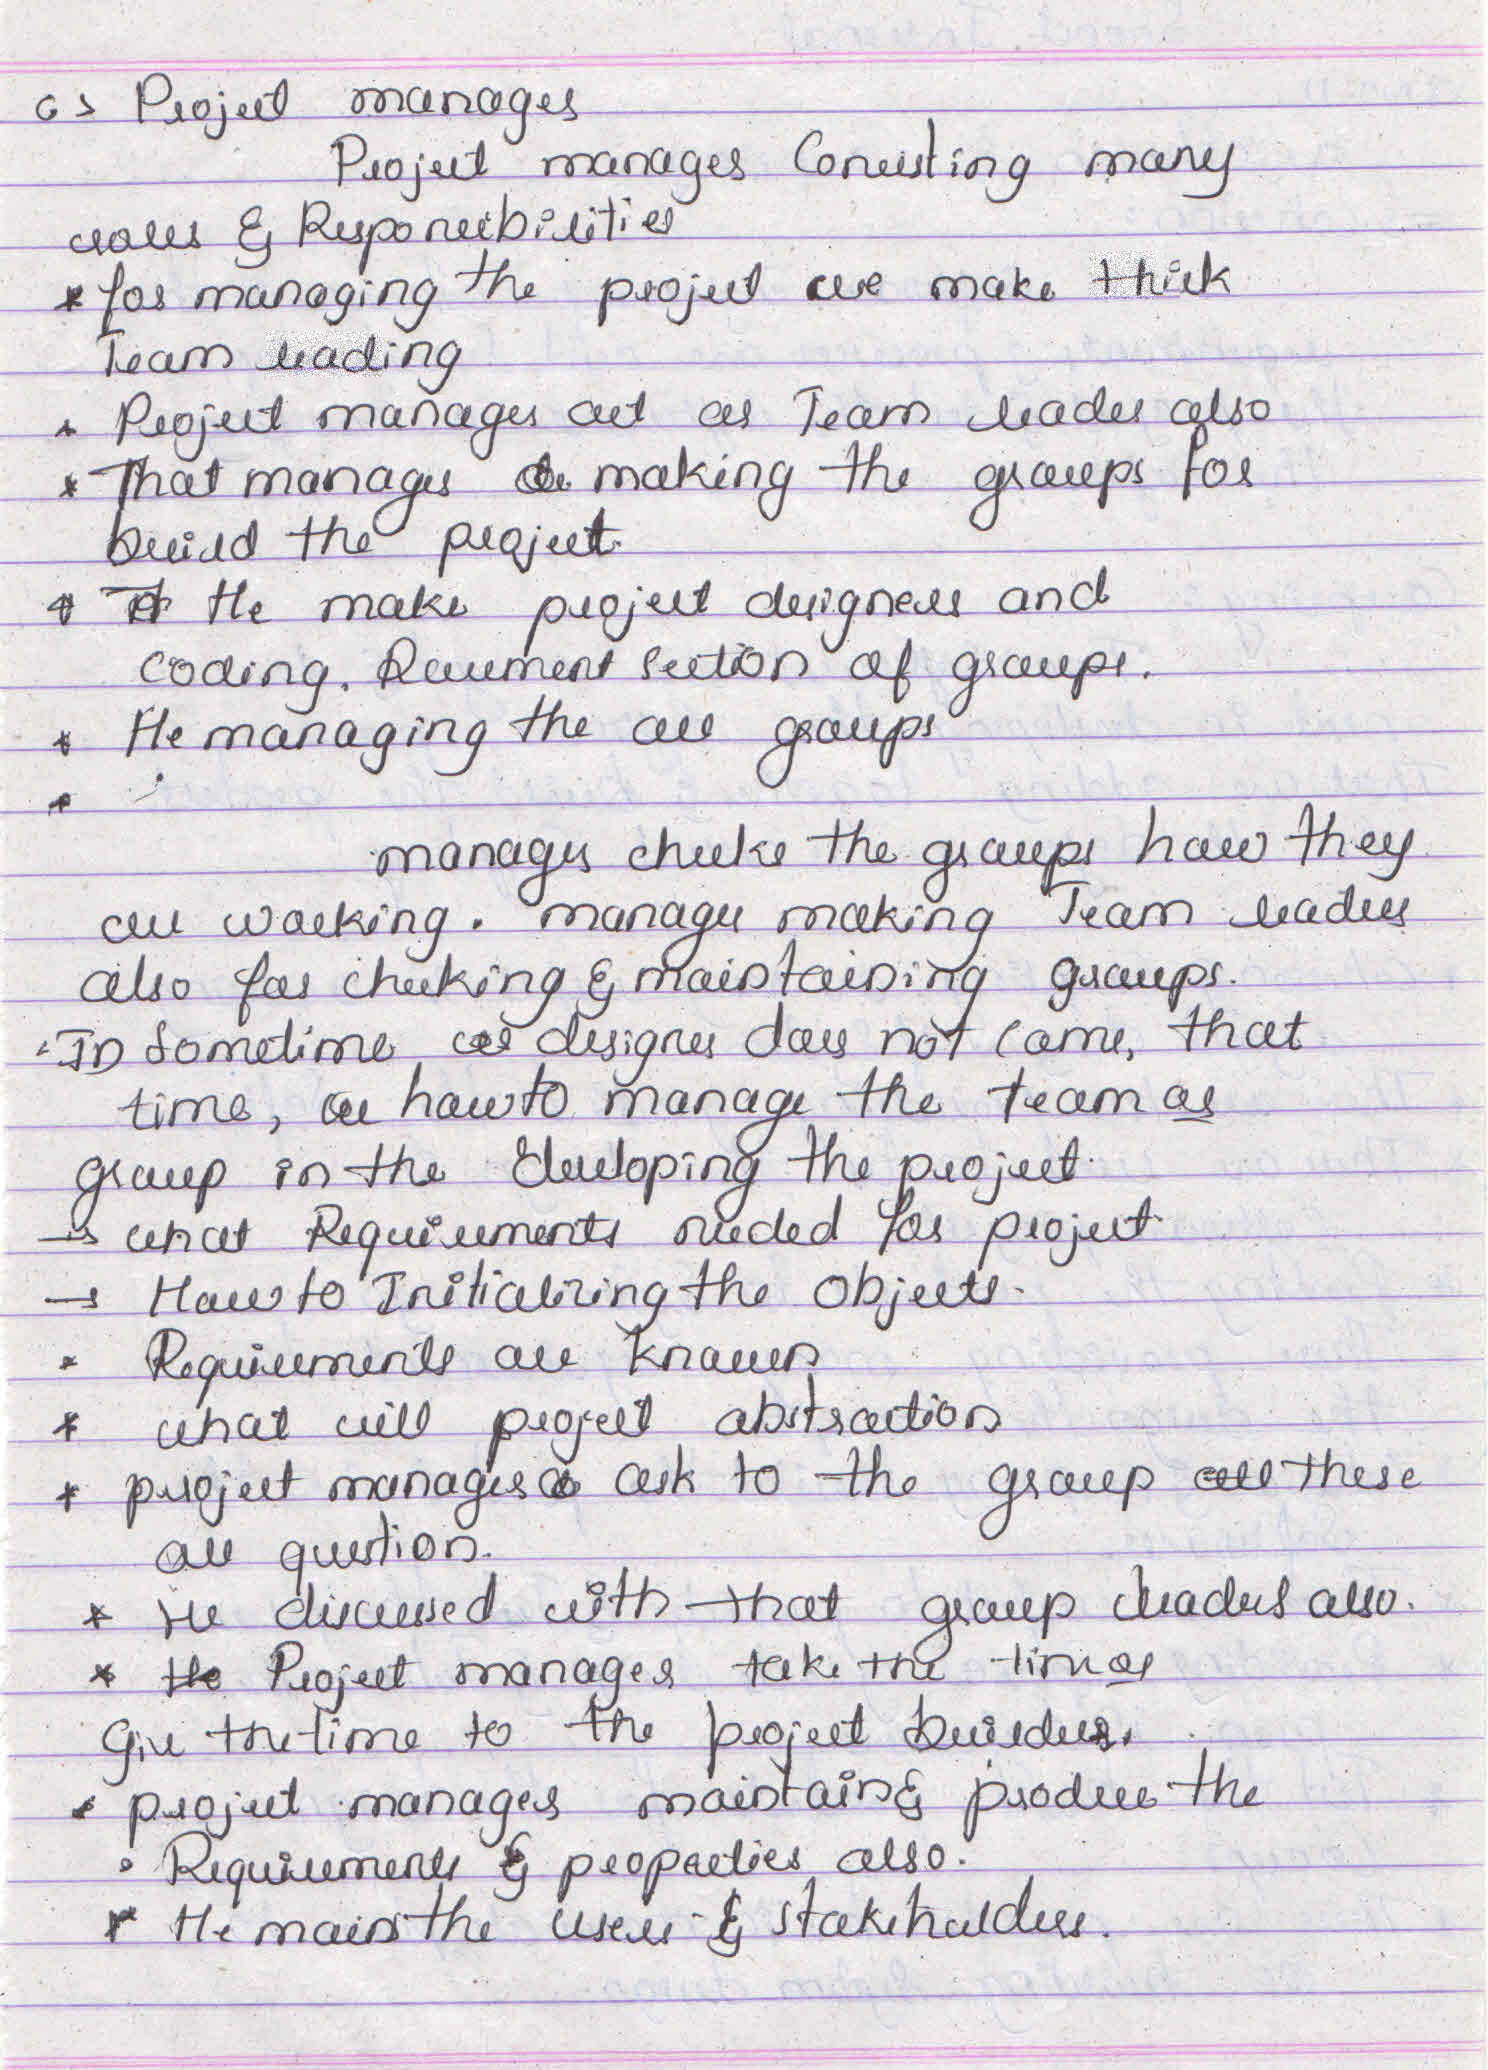 6> Project manager
Project manager Consisting many
roles & Responsibilities
* for managing the project we make think
Team leading
* Project manager act as Team leader also
* That manager making the groups for
build the project.
* He make project designers and
coding. Document section of groups.
* He managing the all groups
*
manager checks the groups how they
are working. manager making Team leaders
also for checking & maintaining groups.
In Sometime designer does not come, that
time, how to manage the team or
group in the developing the project.
→ what Requirements needed for project.
→ How to Initializing the objects.
* Requirements are known
* what will project abstraction
* project manager ask to the group these
all question.
* He discussed with that group leaders also.
* Project manager take the time or
Give the time to the project builders.
* project manager maintain & produce the
• Requirements & properties also.
* He main the users & stakeholders.